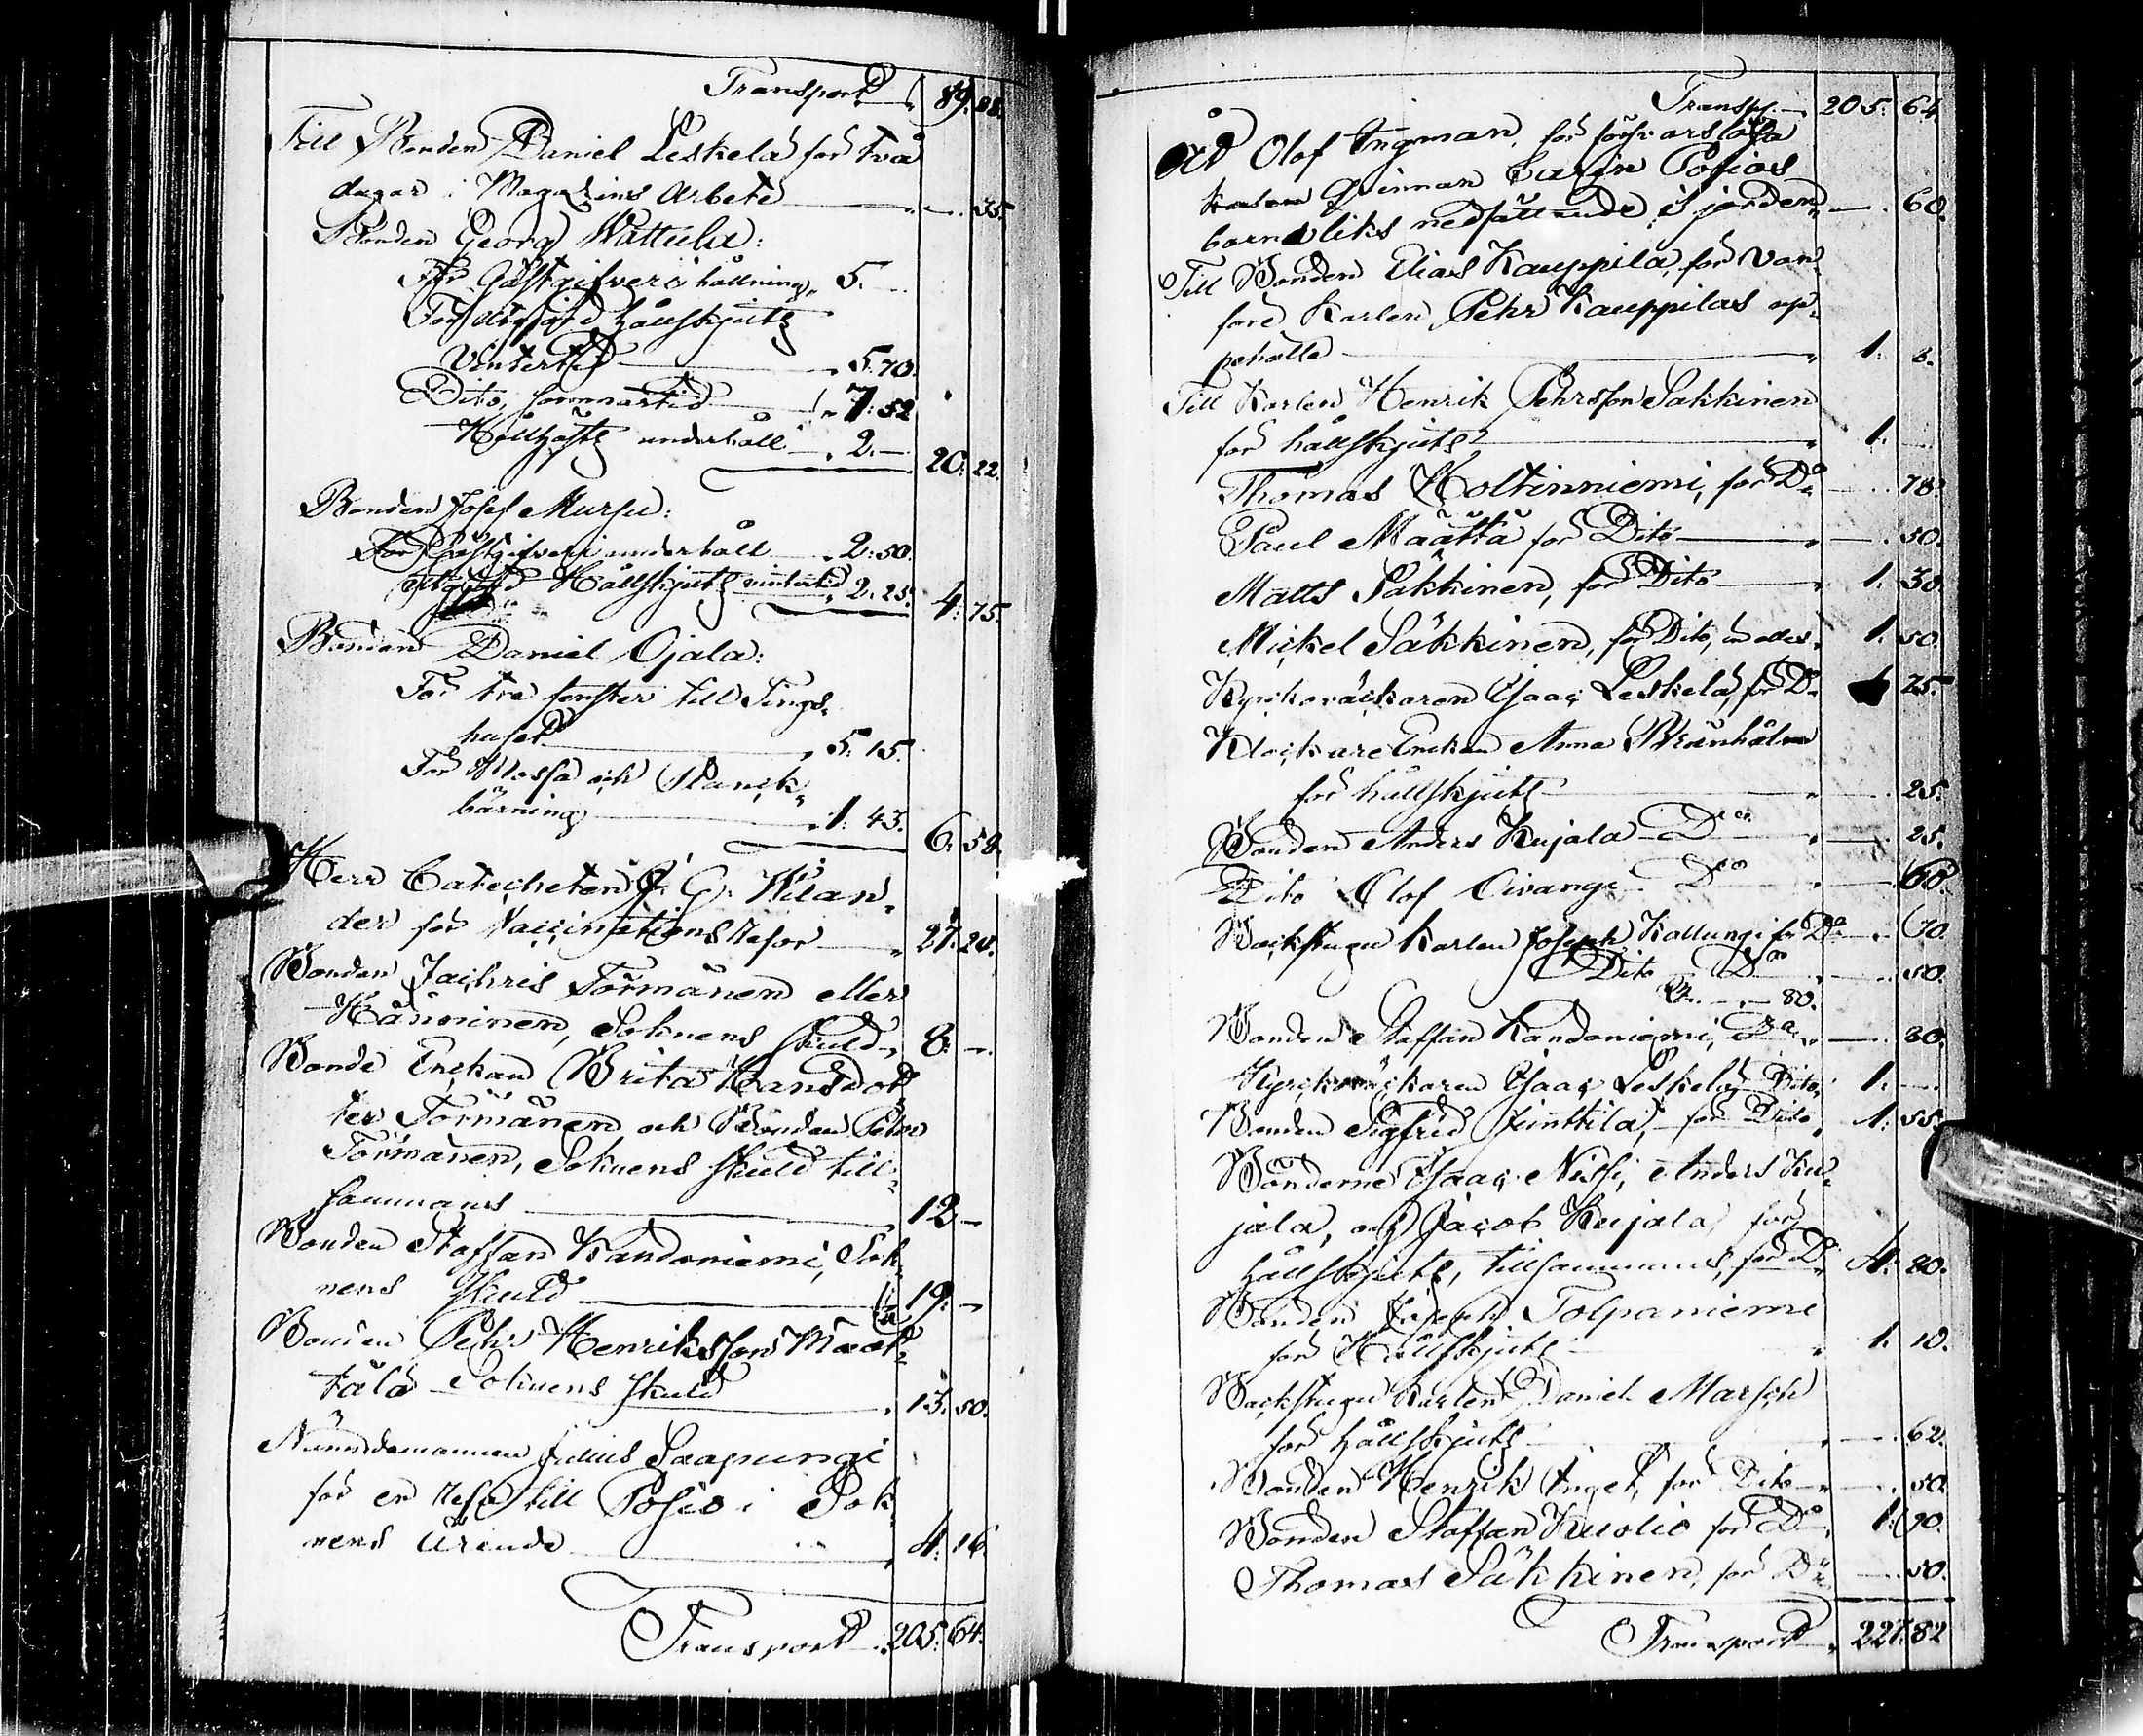 Transport 89. 28.
Till Bonden Daniel Leskelä för två
dagar i Magazins Arbete — . 35.
Bonden Georg Mattula:
För Gästgifveri hållning, 5. —
För utgjord hållskjuts
Vintertid — . 5. 70.
Dito, sommartid — 7: 52
Hållhästs underhåll — . 2. — 20. 22.
Bonden Josef Mursu:
För Gästgifveri underhåll — . 2: 50.
utgjord Hållskjuts vintertid, 2. 25. 4. 75.
Bonden Daniel Ojala:
För tre fenster till Tings-
huset — , 5. 15.
För Mossa och
bärning — . 1. 43. 6. 58.
Herr Catecheten J. G. Kilan-
der för Vaccinations resor — 27. 20.
Bonden Zachris Törmänen eller
Hänninen, Soknens skuld — 8. —
Bonde Enckan Brita Hansdot-
ter Törmänen och Bonden Petter
Törmänen, Soknens skuld till-
sammans — 12 —
Bonden Staffan Kandoniemi, Sok-
nens skuld — 19. —
Bonden Pehr Henriksson Määt-
tälä Soknens skuld — 13. 50.
Nämndemannen Julius Saapungi
för en resa till Posio i Sok-
nens Ärende — 4. 16.
Transport . 205. 64.
Transp. — 205. 64
Åt Olof Ingman, för försvarslösa
Qvinnan Carin Posios
barnaliks nedsättande i jorden — . 60.
Till Bonden Elias Kauppila, för van-
före Karlen Pehr Kauppilas up-
pehälle — 1. 8.
Till Karlen Henrik Pehrsson Säkkinen
för hållskjuts — 1. —
Thomas Holtinniemi, för Do — . 78.
Paul Määttä för Dito — . 50.
Matts Säkkinen, för Dito — 1. 30
Mickel Säkkinen, för Dito, 1. 50.
Kyrkoväckaren Isaac Leskelä, för Do 25.
Klockare Enckan Anna
för hållskjuts — . 25.
Bonden Anders Kujala — Do — . 25.
Dito Olof Oivangi Do — . 60.
Backstugu Karlen Joseph Kallungi för Do — . 70.
Dito Do — . 50.
— 80.
Bonden Staffan Kandoniemi, Do — . 80.
Kyrkoväckaren Isaac Leskelä, Dito, 1. —
Bonden Sigfrid Jünttilä, för Dito, 1. 55.
Bönderne Isaac Nissi, Anders Ku-
jala, och Jacob Kujala, för
hållskjuts, tillsammans, för Do 4. 80.
Bonden Joseph Tolpaniemi
för Hållskjuts — 1. 10.
Backstugu Karlen Daniel Marsch
för hållskjuts — . 62.
Bonden Henrik Inget, för Dito — . 50.
Bonden Staffan Kuolio för Do. 1. 90.
Thomas Säkkinen, för Do — . 50.
Transport, 227. 82